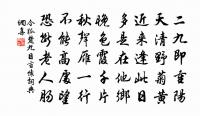 二九即重陽
天清野菊黃
近來逢此日
多是在他鄉
晚色霞千片
秋聲雁一行
不能高處望
恐斷老人腸
令狐楚九日言懷詞典
網